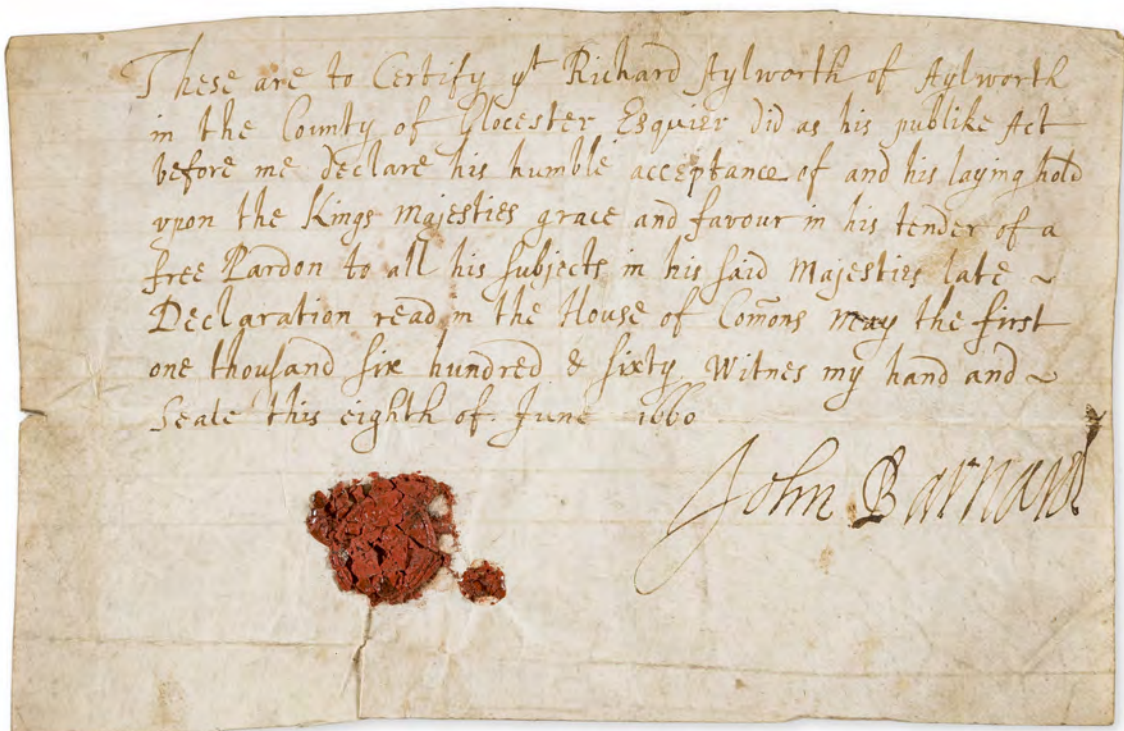 These are to Certify yt Richard Aylworth of Aylworth
in the County of Glocester Esquier did as his publike Act
before me declare his humble acceptance of and his laying hold
vpon the Kings Majesties grace and favour in his tender of a
free Pardon to all his subjects in his said Majesties late ~
Declaration read in the House of Com̄ons May the first
one thousand six hundred & sixty Witnes my hand and ~
Seale this eighth of June 1660
John Barnard